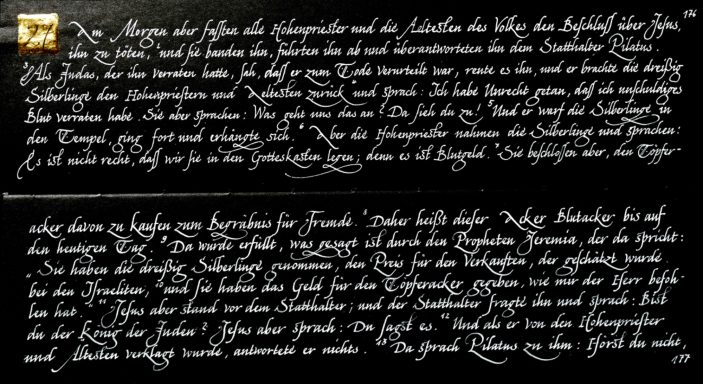 176
27 Am Morgen aber faßten alle Hohenpriester und die Aeltesten des Volkes den Beschluß über Jesus,
ihn zu töten, ²und sie banden ihn, führten ihn ab und überantworteten ihn dem Statthalter Pilatus.
³Als Judas, der ihn verraten hatte, sah, daß er zum Tode verurteilt war, reute es ihn, und er brachte die dreißig
Silberlinge den Hohenpriestern und Aeltesten zurück ⁴und sprach: Ich habe Unrecht getan, daß ich unschuldiges
Blut verraten habe. Sie aber sprachen: Was geht uns das an? Da sieh du zu! ⁵Und er warf die Silberlinge in
den Tempel, ging fort und erhängte sich. ⁶Aber die Hohenpriester nahmen die Silberlinge und sprachen:
Es ist nicht recht, daß wir sie in den Gotteskasten legen; denn es ist Blutgeld. ⁷Sie beschlossen aber, den Töpfer-
acker davon zu kaufen zum Begräbnis für Fremde. ⁸Daher heißt dieser Acker Blutacker bis auf
den heutigen Tag. ⁹Da wurde erfüllt, was gesagt ist durch den Propheten Jeremia, der da spricht:
„Sie haben die dreißig Silberlinge genommen, den Preis für den Verkauften, der geschätzt wurde
bei den Israeliten, ¹⁰und sie haben das Geld für den Töpferacker gegeben, wie mir der Herr befoh-
len hat. ¹¹Jesus aber stand vor dem Statthalter; und der Statthalter fragte ihn und sprach: Bist
du der König der Juden? Jesus aber sprach: Du sagst es. ¹²Und als er von den Hohenpriester
und Ältesten verklagt wurde, antwortete er nichts. ¹³Da sprach Pilatus zu ihm: Hörst du nicht,
177